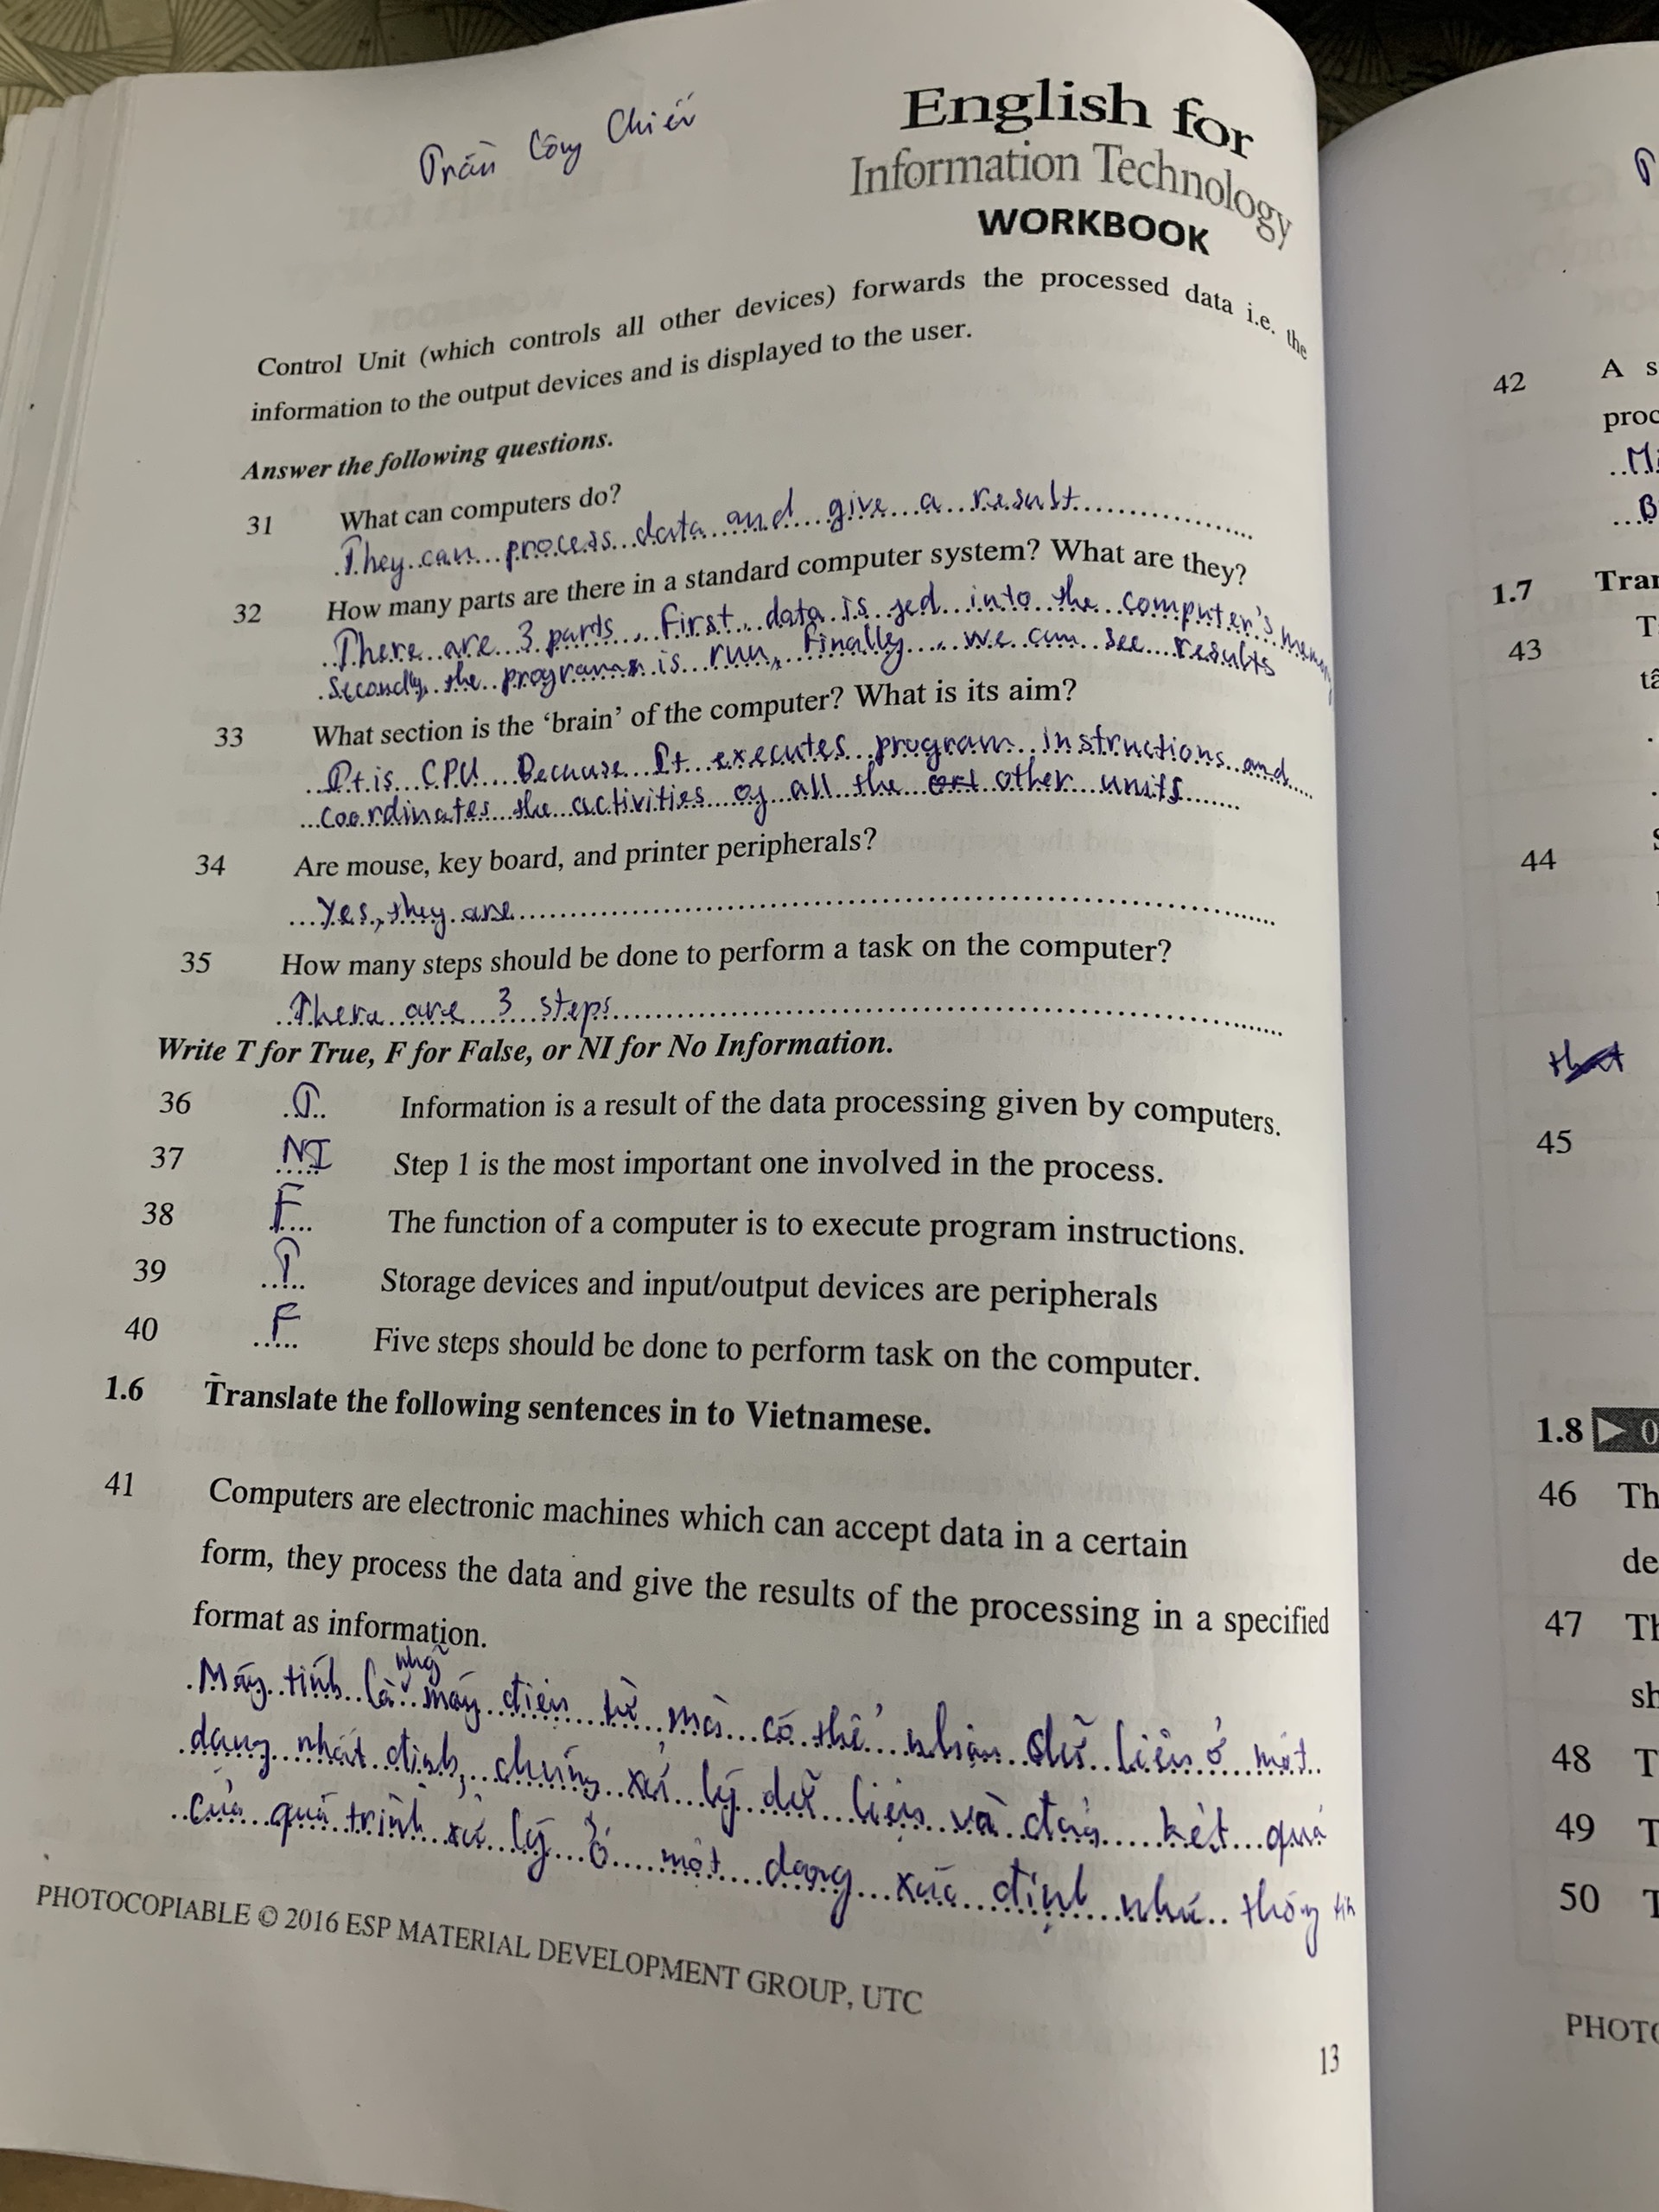 Trần Công Chiến
English for
Information Technology
WORKBOOK
Control Unit (which controls all other devices) forwards the processed data i.e. the
information to the output devices and is displayed to the user.
Answer the following questions.
31 What can computers do?
They can process data and give a result
32 How many parts are there in a standard computer system? What are they?
There are 3 parts, First, data is fed into the computer's
Secondly, the program is run, Finally, we can see results
33 What section is the 'brain' of the computer? What is its aim?
It is CPU Because It executes program instructions and
coordinates the activities of all the other units
34 Are mouse, key board, and printer peripherals?
Yes, they are
35 How many steps should be done to perform a task on the computer?
There are 3 steps
Write T for True, F for False, or NI for No Information.
36 T Information is a result of the data processing given by computers.
37 NI Step 1 is the most important one involved in the process.
38 F The function of a computer is to execute program instructions.
39 T Storage devices and input/output devices are peripherals
40 F Five steps should be done to perform task on the computer.
1.6 Translate the following sentences in to Vietnamese.
41 Computers are electronic machines which can accept data in a certain
form, they process the data and give the results of the processing in a specified
format as information.
Máy tính là máy điện tử mà có thể nhận dữ liệu ở một
dạng nhất định, chúng xử lý dữ liệu và đưa kết quả
của quá trình xử lý ở một dạng xác định như thông tin
PHOTOCOPIABLE © 2016 ESP MATERIAL DEVELOPMENT GROUP, UTC
13
42 A
1.7
43
44
45
1.8
46
47
48
49
50